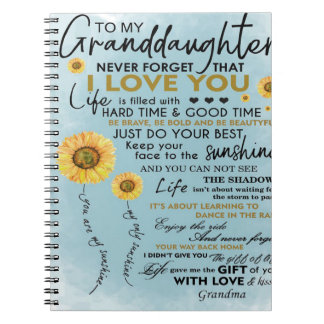 TO MY
Granddaughter
NEVER FORGET THAT
I LOVE YOU
Life is filled with
HARD TIME & GOOD TIME
BE BRAVE, BE BOLD AND BE BEAUTYFU
JUST DO YOUR BEST,
Keep your
face to the sunshine
AND YOU CAN NOT SEE
THE SHADOW
Life isn't about waiting fo
the storm to pa
IT'S ABOUT LEARNING TO
DANCE IN THE RA
Enjoy the ride
And never forge
YOUR WAY BACK HOME
I DIDN'T GIVE YOU The gift of
Life gave me the GIFT of yo
WITH LOVE & kiss
Grandma
you are my sunshine
my only sunshine